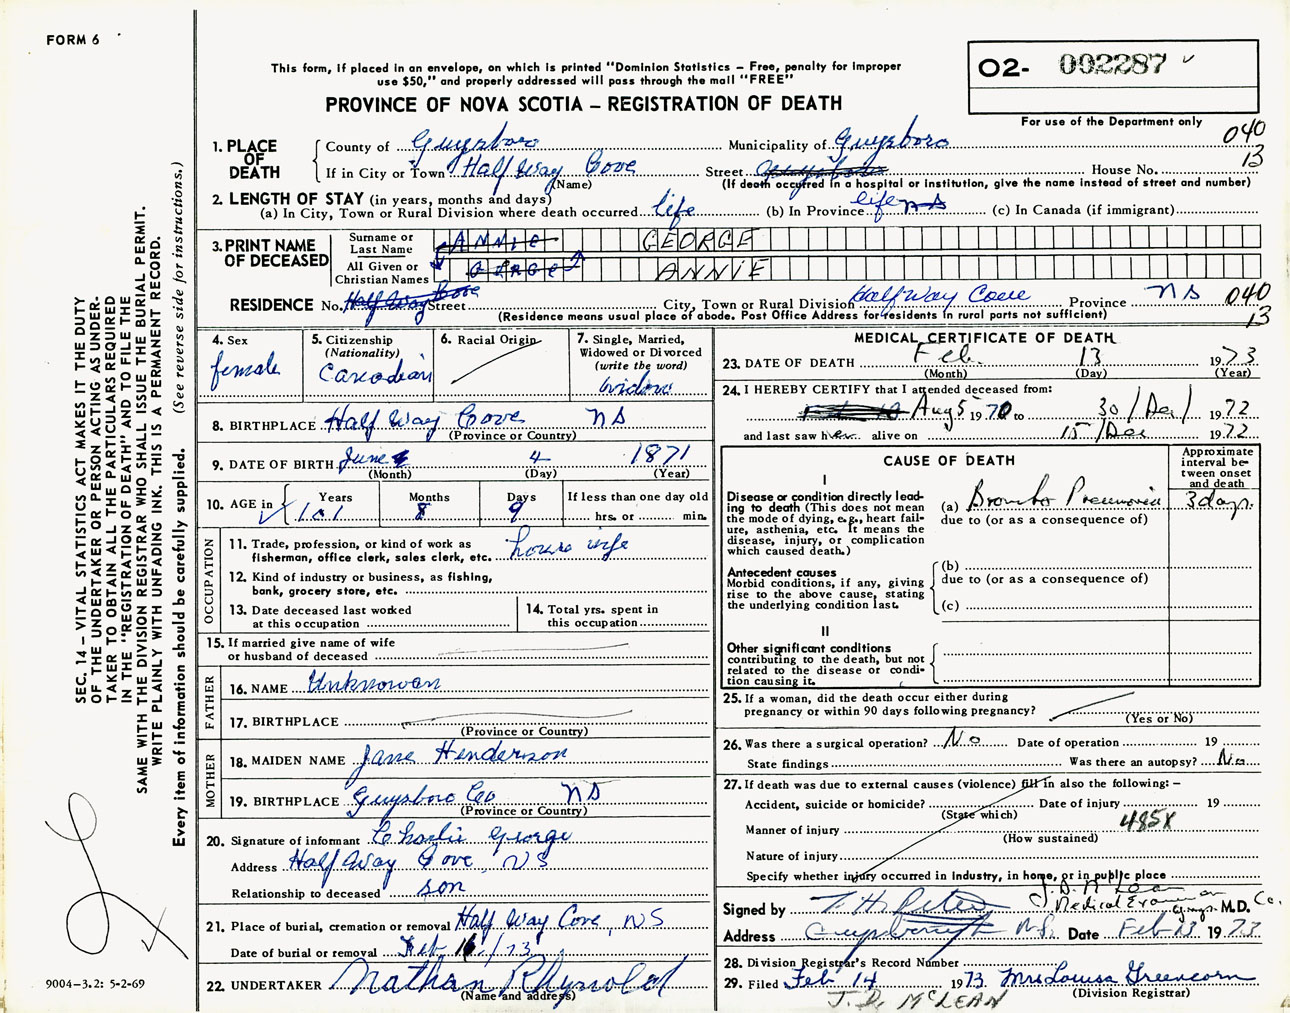 FORM 6
This form, if placed in an envelope, on which is printed "Dominion Statistics – Free, penalty for improper
use $50," and properly addressed will pass through the mail "FREE"
PROVINCE OF NOVA SCOTIA – REGISTRATION OF DEATH
O2- 002287
For use of the Department only
040
13
1. PLACE OF DEATH
County of Guysboro Municipality of Guysboro
If in City or Town Half Way Cove Street Guysboro House No.
(Name) (If death occurred in a hospital or institution, give the name instead of street and number)
2. LENGTH OF STAY (in years, months and days)
(a) In City, Town or Rural Division where death occurred life (b) In Province life NS (c) In Canada (if immigrant)
3. PRINT NAME OF DECEASED
Surname or Last Name ANNIE GEORGE
All Given or Christian Names GEORGE ANNIE
RESIDENCE No. Half Way Cove Street City, Town or Rural Division Half Way Cove Province NS 040
13
(Residence means usual place of abode. Post Office Address for residents in rural parts not sufficient)
4. Sex
female
5. Citizenship
(Nationality)
Canadian
6. Racial Origin
7. Single, Married,
Widowed or Divorced
(write the word)
widow
8. BIRTHPLACE Half Way Cove NS
(Province or Country)
9. DATE OF BIRTH June 4 1871
(Month) (Day) (Year)
10. AGE in Years Months Days If less than one day old
101 8 9 hrs. or min.
OCCUPATION
11. Trade, profession, or kind of work as
fisherman, office clerk, sales clerk, etc. house wife
12. Kind of industry or business, as fishing,
bank, grocery store, etc.
13. Date deceased last worked
at this occupation
14. Total yrs. spent in
this occupation
15. If married give name of wife
or husband of deceased
FATHER
16. NAME Unknowen
17. BIRTHPLACE
(Province or Country)
MOTHER
18. MAIDEN NAME Jane Henderson
19. BIRTHPLACE Guysboro Co NS
(Province or Country)
20. Signature of informant Charlie George
Address Half Way Cove, NS
Relationship to deceased son
21. Place of burial, cremation or removal Half Way Cove, NS
Date of burial or removal Feb 16/73
22. UNDERTAKER Nathan
(Name and address)
MEDICAL CERTIFICATE OF DEATH
23. DATE OF DEATH Feb. 13 1973
(Month) (Day) (Year)
24. I HEREBY CERTIFY that I attended deceased from:
Aug 5 1970 to 30/Dec/ 1972
and last saw her alive on 15/Dec 1972
CAUSE OF DEATH
Approximate interval between onset and death
I
Disease or condition directly leading
to death (This does not mean
the mode of dying, e.g., heart failure,
asthenia, etc. It means the
disease, injury, or complication
which caused death.)
(a) Broncho Pneumonia 3 days.
due to (or as a consequence of)
Antecedent causes
Morbid conditions, if any, giving
rise to the above cause, stating
the underlying condition last.
(b)
due to (or as a consequence of)
(c)
II
Other significant conditions
contributing to the death, but not
related to the disease or condition
causing it.
25. If a woman, did the death occur either during
pregnancy or within 90 days following pregnancy?
(Yes or No)
26. Was there a surgical operation? No Date of operation 19
State findings Was there an autopsy? No
27. If death was due to external causes (violence) fill in also the following: –
Accident, suicide or homicide? Date of injury 19
(State which)
Manner of injury 485X
(How sustained)
Nature of injury
Specify whether injury occurred in industry, in home, or in public place
Signed by Medical M.D. Co.
Address N.S. Date Feb 13 1973
28. Division Registrar's Record Number
29. Filed Feb 14 1973 Mrs Louisa Greencorn
(Division Registrar)
J. D. McLEAN
SEC. 14 – VITAL STATISTICS ACT MAKES IT THE DUTY
OF THE UNDERTAKER OR PERSON ACTING AS UNDERTAKER
TO OBTAIN ALL THE PARTICULARS REQUIRED
IN THE "REGISTRATION OF DEATH" AND TO FILE THE
SAME WITH THE DIVISION REGISTRAR WHO SHALL ISSUE THE BURIAL PERMIT.
WRITE PLAINLY WITH UNFADING INK. THIS IS A PERMANENT RECORD.
Every item of information should be carefully supplied. (See reverse side for instructions.)
9004-3.2: 5-2-69